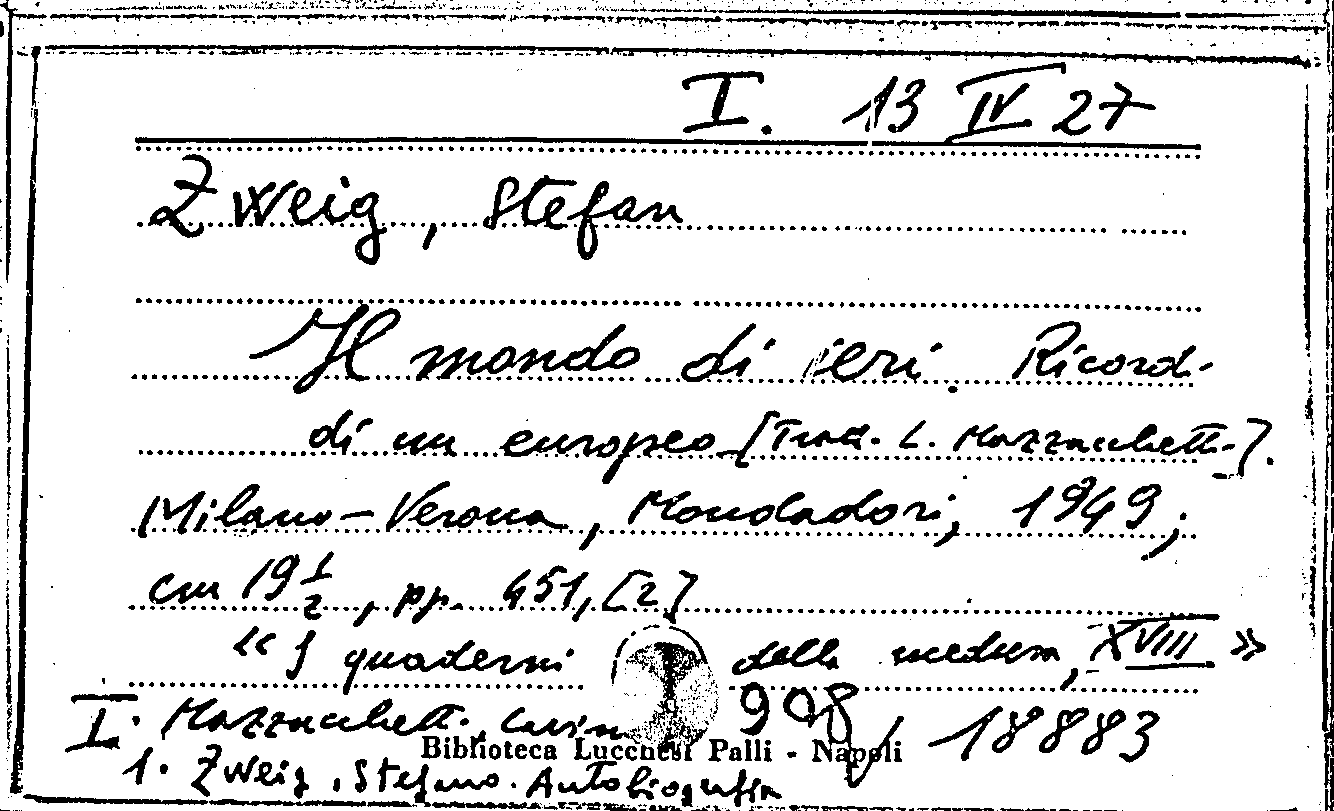 I. 13 IV 27
Zweig, Stefan
Il mondo di ieri. Ricordi
di un europeo [Trad. L. Mazzucchetti].
Milano-Verona, Mondadori, 1949;
cm 19 1/2, pp. 451, [2]
"I quaderni della medusa, XVIII"
I. Mazzucchetti, Lavinia 908/18883
Biblioteca Lucchesi Palli - Napoli
1. Zweig, Stefano. Autobiografia